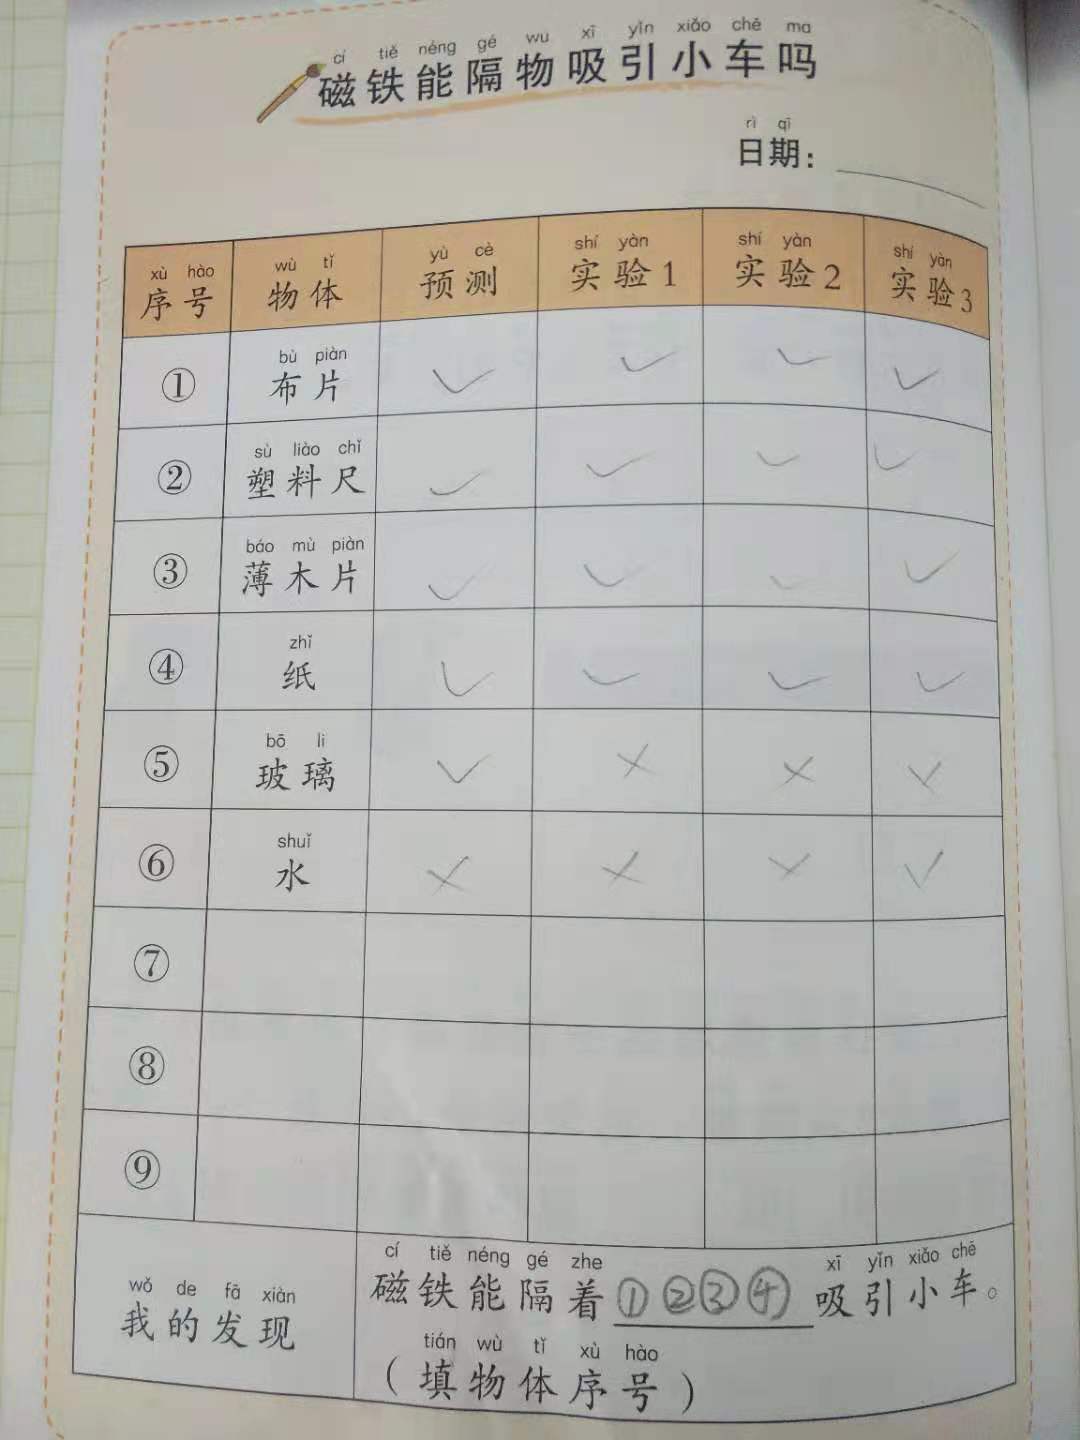 cí tiě néng gé wu xī yǐn xiǎo chē ma
磁铁能隔物吸引小车吗
rì qī
日期：
xù hào wù tǐ yù cè shí yàn shí yàn shí yàn
序号 物体 预测 实验1 实验2 实验3
bù piàn
① 布片 ✓ ✓ ✓ ✓
sù liào chǐ
② 塑料尺 ✓ ✓ ✓ ✓
báo mù piàn
③ 薄木片 ✓ ✓ ✓ ✓
zhǐ
④ 纸 ✓ ✓ ✓ ✓
bō li
⑤ 玻璃 ✓ × × ×
shuǐ
⑥ 水 × × × ✓
⑦
⑧
⑨
wǒ de fā xiàn
我的发现
cí tiě néng gé zhe xī yǐn xiǎo chē
磁铁能隔着①②③④吸引小车。
tián wù tǐ xù hào
（填物体序号）